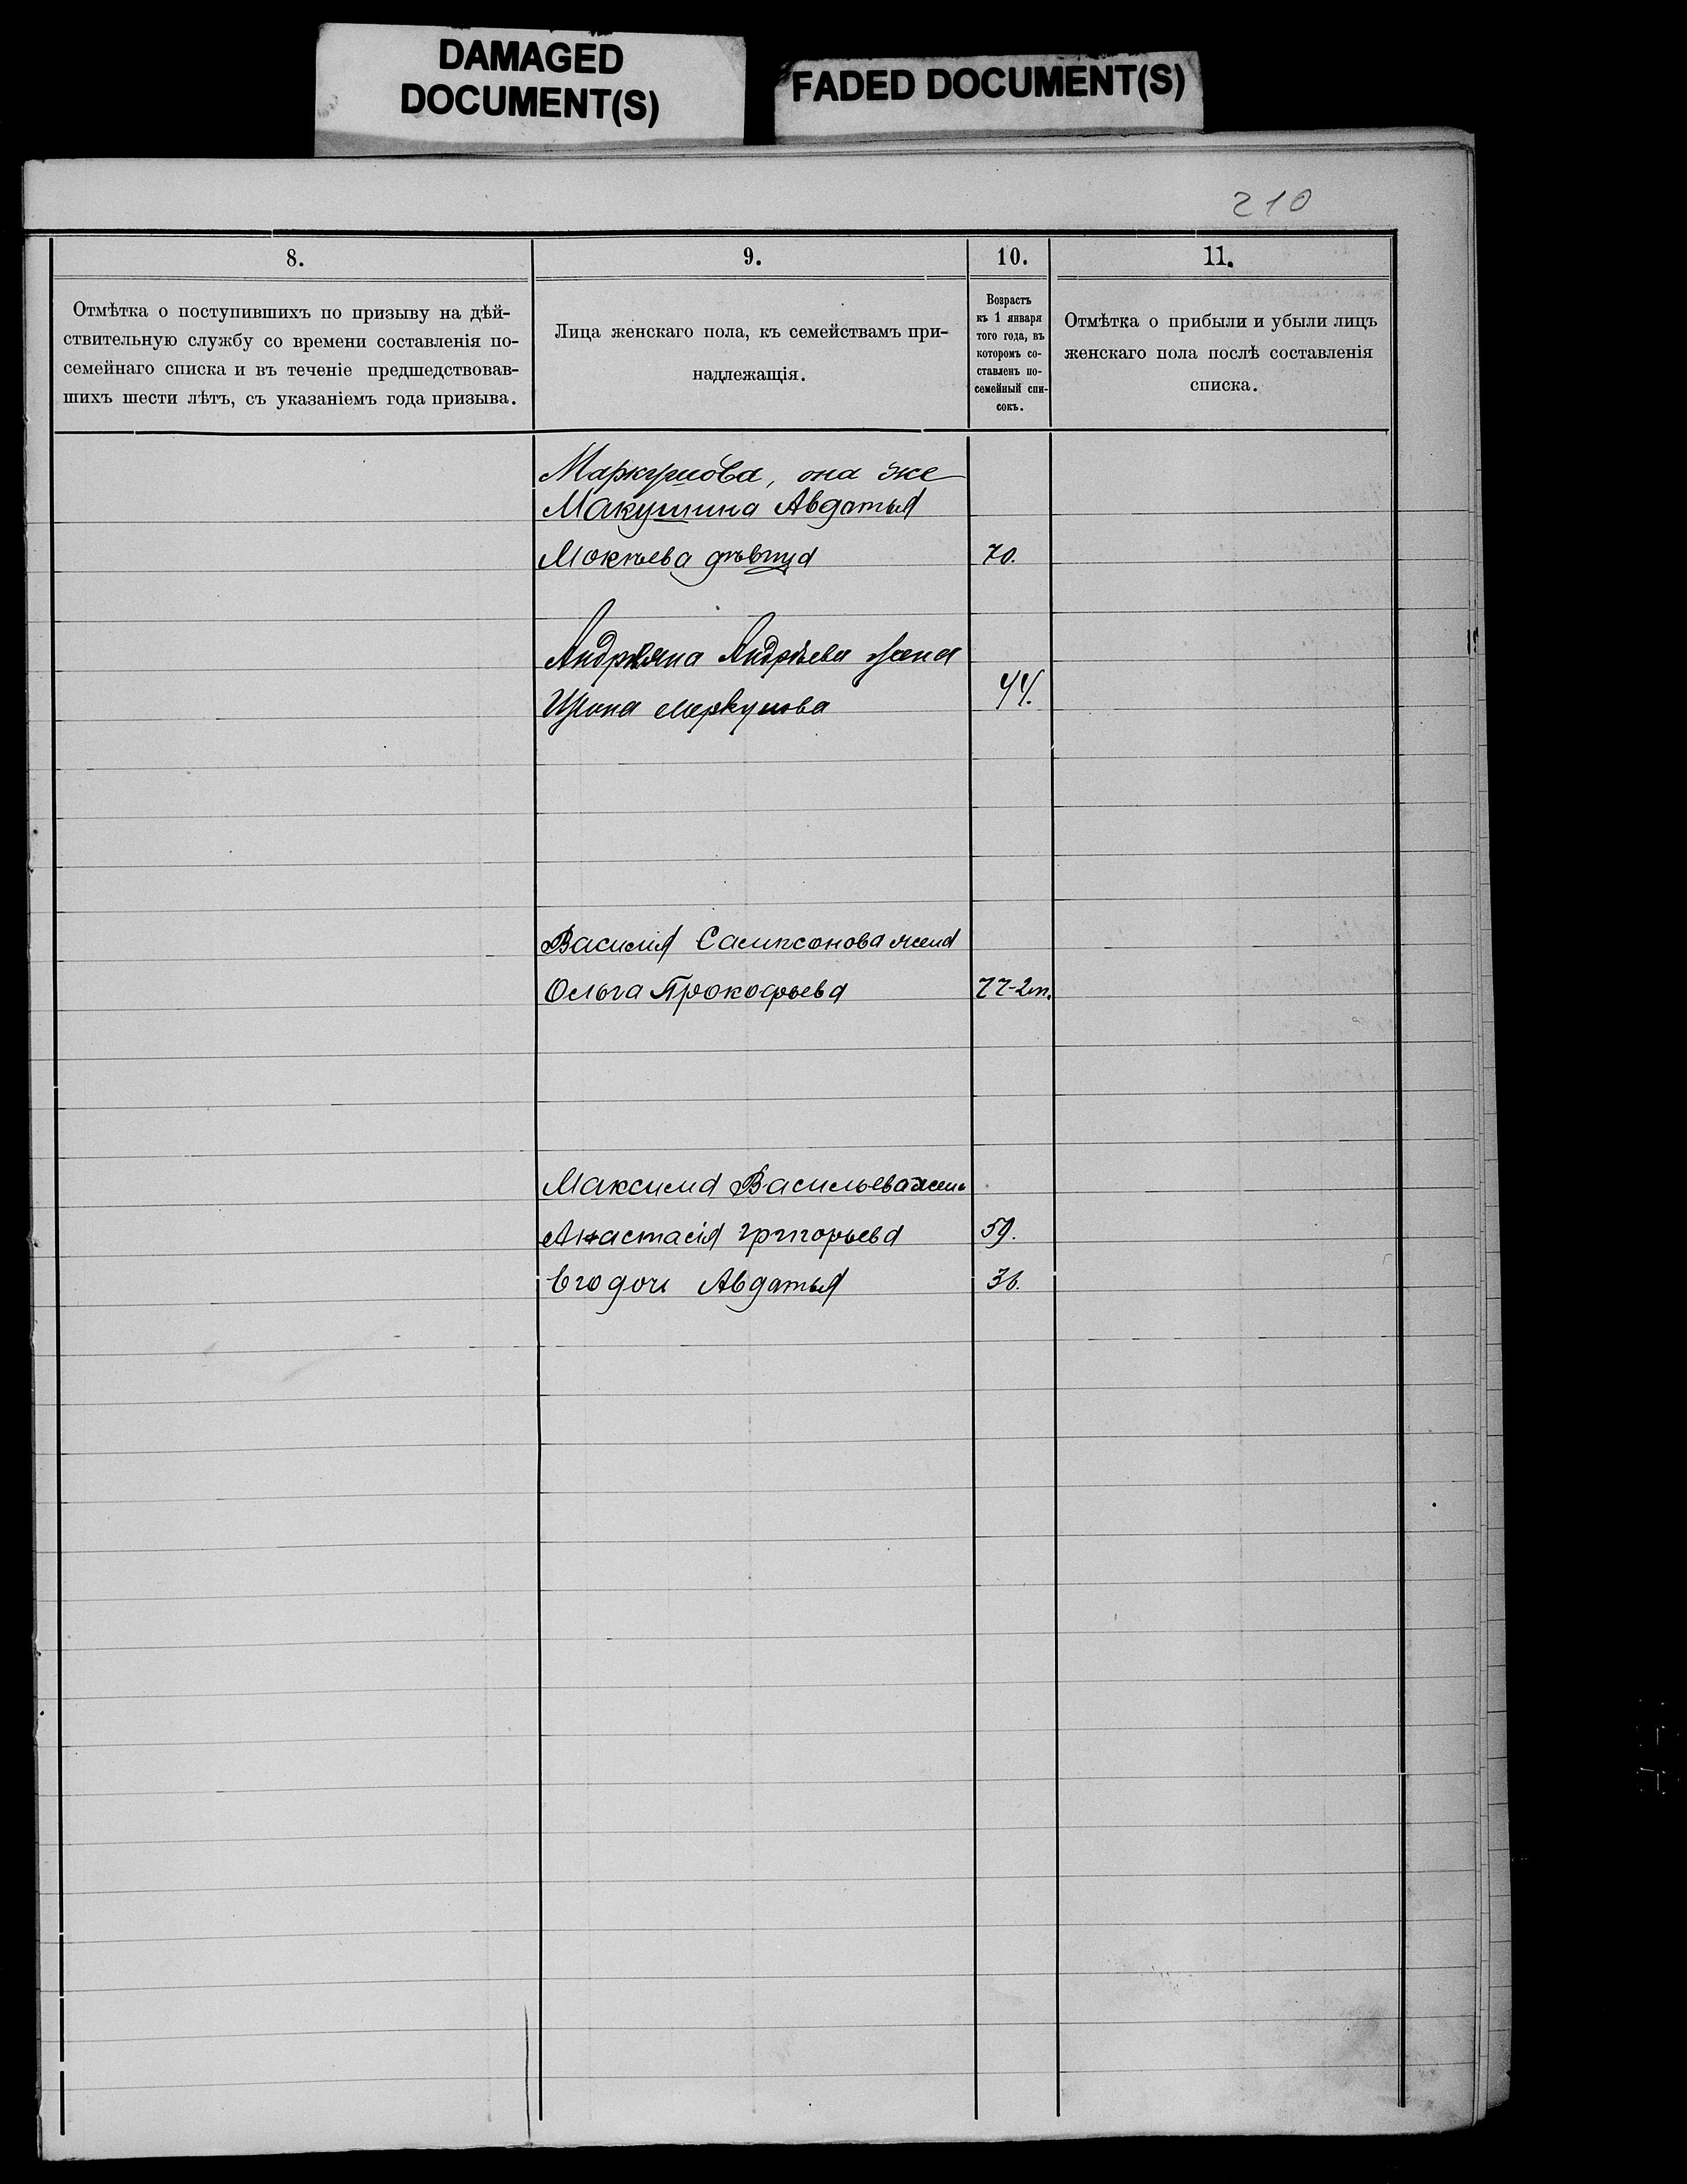 DAMAGED
DOCUMENT(S)
FADED DOCUMENT(S)
210
8.
9.
10.
11.
Отмѣтка о поступившихъ по призыву на дѣй-
ствительную службу со времени составленія по-
семейнаго списка и въ теченіе предшедствовав-
шихъ шести лѣтъ, съ указаніемъ года призыва.
Лица женскаго пола, къ семействамъ при-
надлежащія.
Возрастъ
къ 1 января
того года, въ
которомъ со-
ставленъ по-
семейный спи-
сокъ.
Отмѣтка о прибыли и убыли лицъ
женскаго пола послѣ составленія
списка.
Маркушова, она же
Макушина Авдатья
Мокѣева дѣвица 70.
Андрияна Андрѣева жена
Ирина Меркушова 44.
Василия Сампсонова жена
Ольга Прокофьева 77-2м.
Максима Васильева жена
Анастасія Григорьева 59.
Его дочь Авдатья 36.